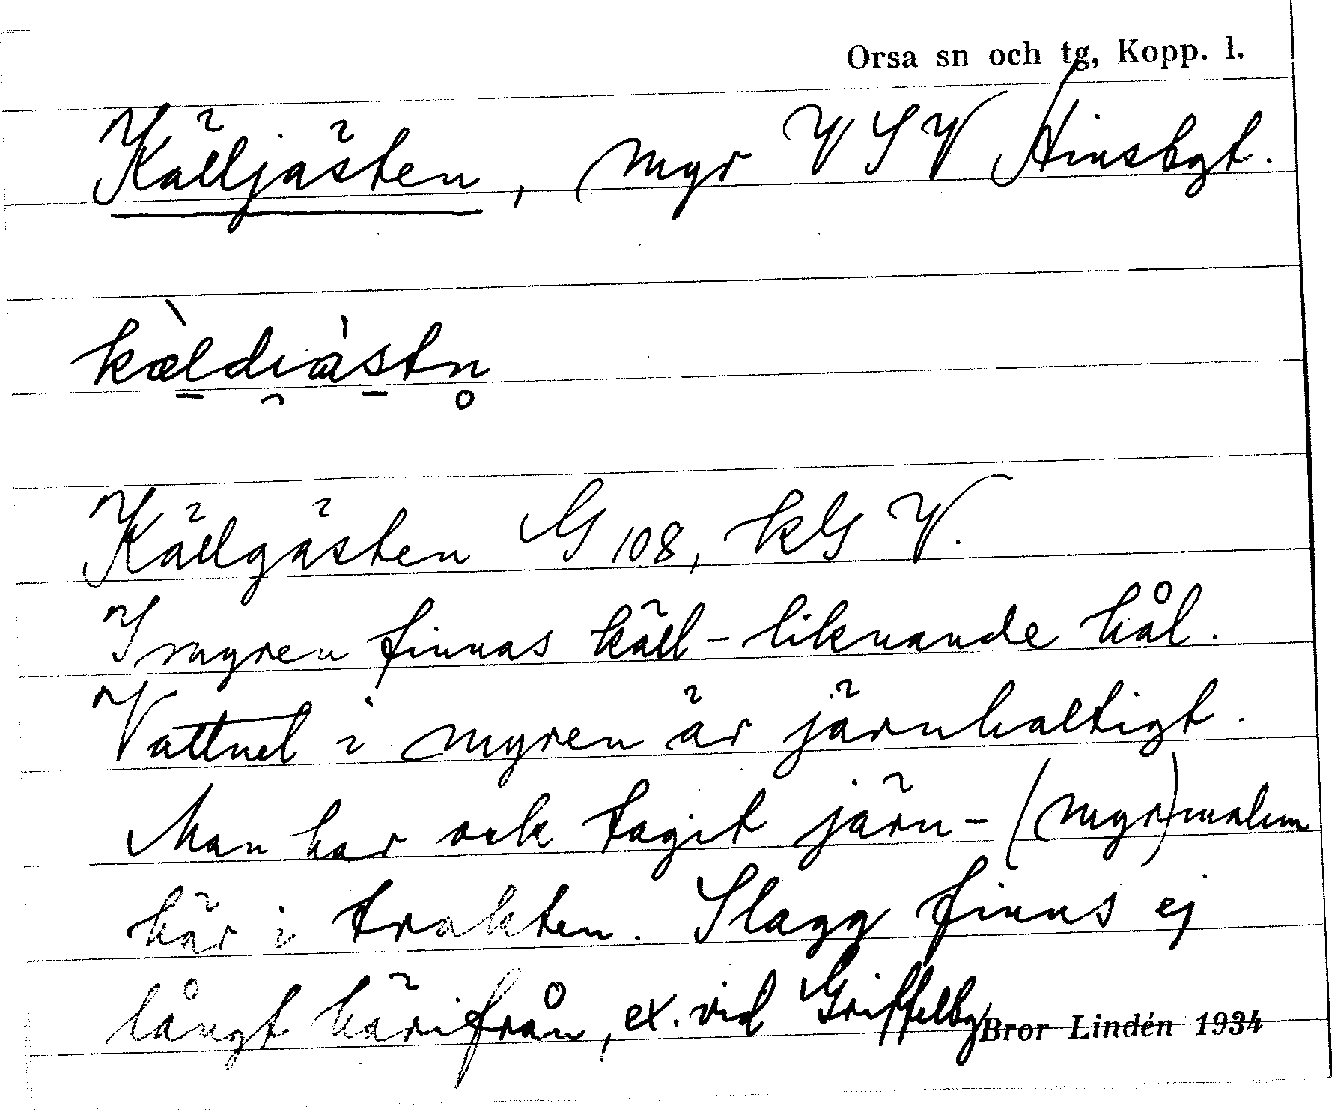 Orsa sn och tg, Kopp. l.
Källjästen, myr VSV Hinsbgt.
kældiästn
Källgästen G 108, kG V.
I myren finnas käll-liknande hål.
Vattnet i myren är järnhaltigt.
Man har ock tagit järn-(myr)malm
här i trakten. Slagg finns ej
långt härifrån, ex. vid Griffelbg
Bror Lindén 1934